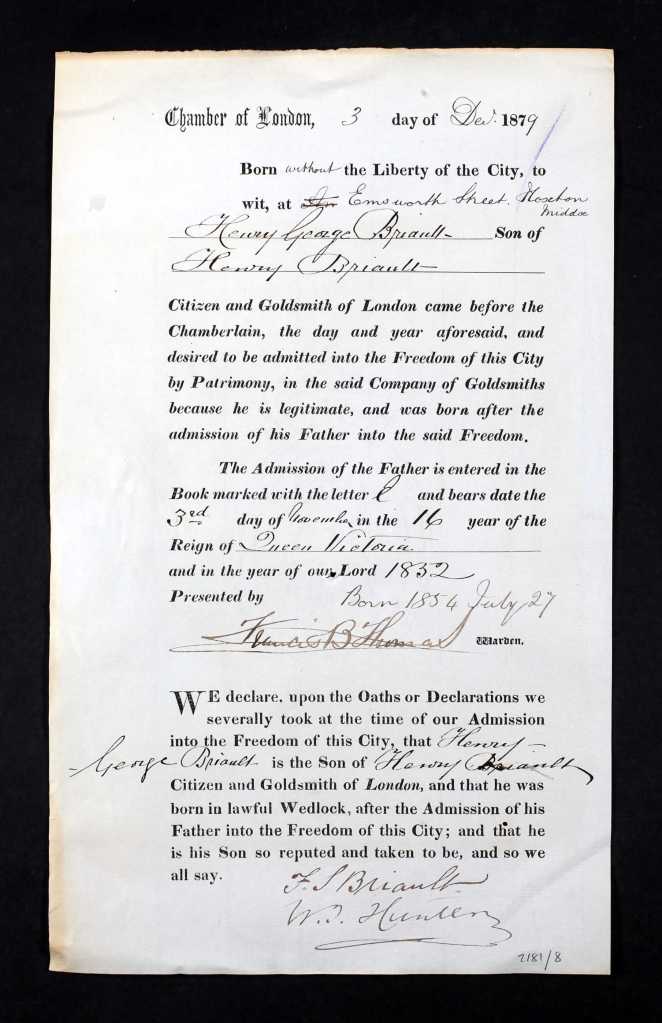 Chamber of London, 3 day of Decr. 1879
Born without the Liberty of the City, to
wit, at Emsworth Street. Hoxton
Middx
Henry George Briault Son of
Henry Briault
Citizen and Goldsmith of London came before the
Chamberlain, the day and year aforesaid, and
desired to be admitted into the Freedom of this City
by Patrimony, in the said Company of Goldsmiths
because he is legitimate, and was born after the
admission of his Father into the said Freedom.
The Admission of the Father is entered in the
Book marked with the letter and bears date the
3rd day of November in the 16 year of the
Reign of Queen Victoria
and in the year of our Lord 1852
Presented by Born 1854 July 27
Francis B Thomas Warden.
WE declare, upon the Oaths or Declarations we
severally took at the time of our Admission
into the Freedom of this City, that Henry
George Briault is the Son of Henry Briault
Citizen and Goldsmith of London, and that he was
born in lawful Wedlock, after the Admission of his
Father into the Freedom of this City; and that he
is his Son so reputed and taken to be, and so we
all say.
F. S Briault
W. J. Hunter
2181/8